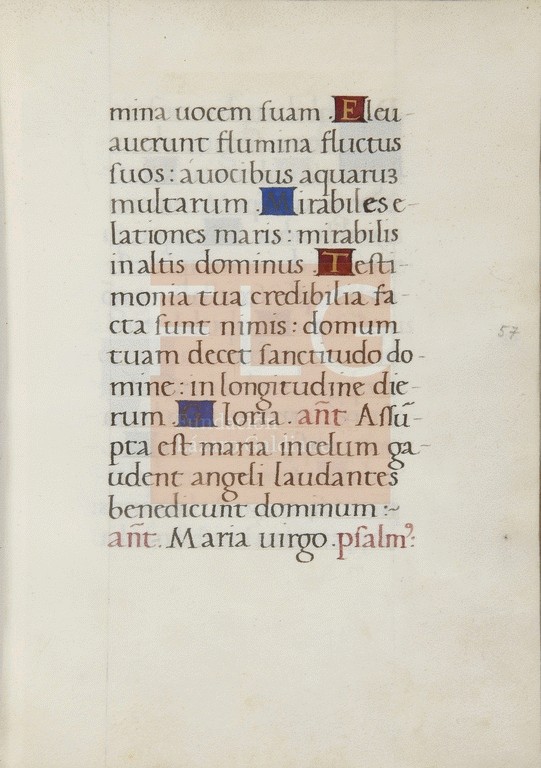 mina uocem suam . Eleu-
auerunt flumina fluctus
suos : a uocibus aquaruꝫ
multarum . Mirabiles e-
lationes maris : mirabilis
in altis dominus . Testi-
monia tua credibilia fa-
cta sunt nimis : domum
tuam decet sanctitudo do-
mine : in longitudine die-
rum . Gloria . añt Assũ-
pta est maria in celum ga-
udent angeli laudantes
benedicunt dominum :~
añt . Maria uirgo . psalmꝰ:
57
FLG
Fundación
Lázaro Galdiano